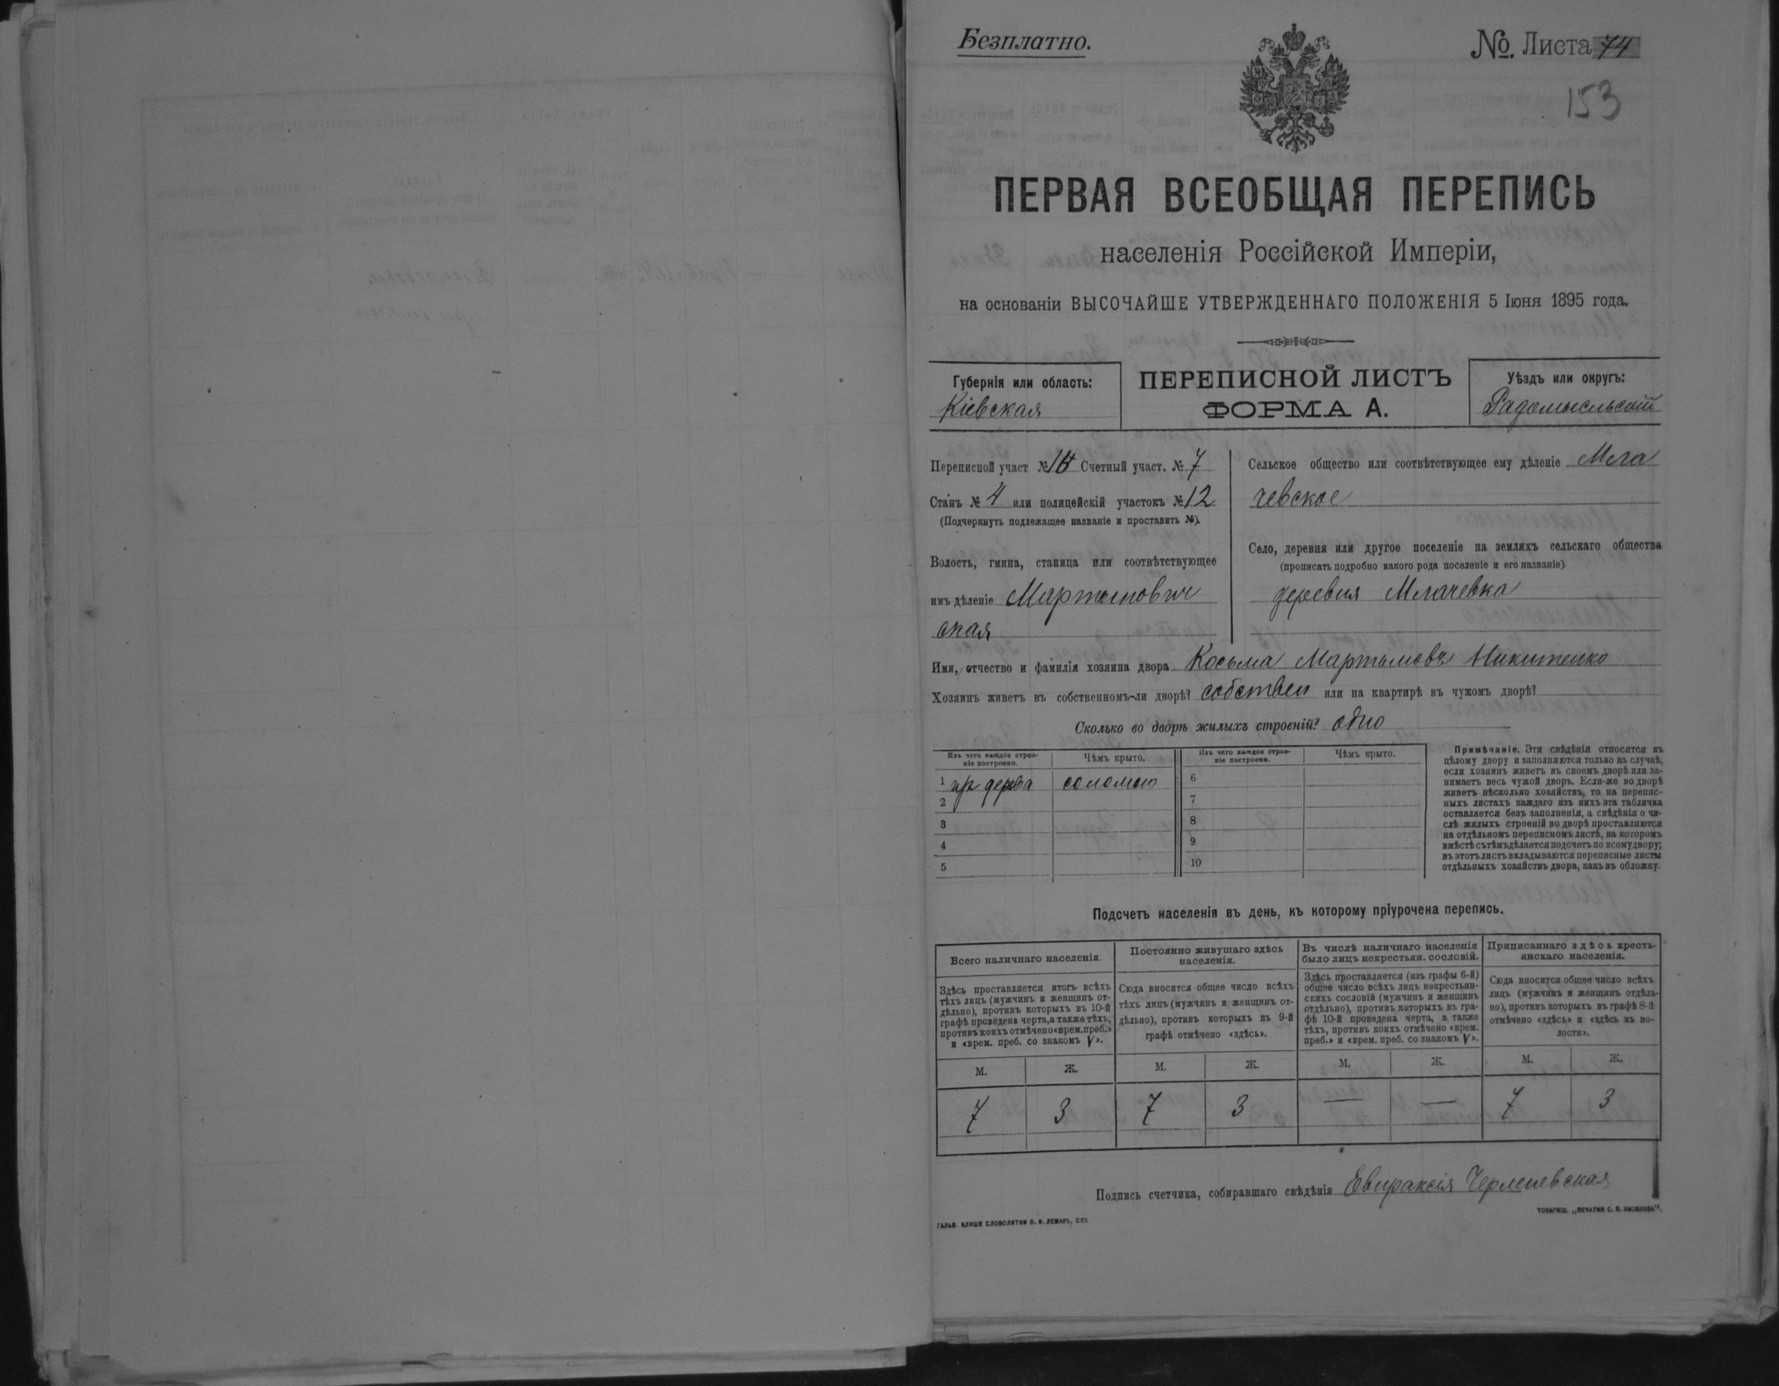 Безплатно.
№. Листа 74
153
ПЕРВАЯ ВСЕОБЩАЯ ПЕРЕПИСЬ
населенія Россійской Имперіи,
на основаніи ВЫСОЧАЙШЕ УТВЕРЖДЕННАГО ПОЛОЖЕНІЯ 5 Іюня 1895 года.
Губернія или область:
Кіевская
ПЕРЕПИСНОЙ ЛИСТЪ
ФОРМА А.
Уѣздъ или округъ:
Радомысльскій
Переписной участ № Счетный участ. № 7
Станъ № 4 или полицейскій участокъ № 12
(Подчеркнуть подлежащее названіе и проставить №).
Волость, гмина, станица или соотвѣтствующее
имъ дѣленіе Мартынович
ская
Сельское общество или соотвѣтствующее ему дѣленіе Мла
чевское
Село, деревня или другое поселеніе на земляхъ сельскаго общества
(прописать подробно какого рода поселеніе и его названіе)
деревня Млачевка
Имя, отчество и фамилія хозяина двора Косьма Никитенко
Хозяинъ живетъ въ собственномъ-ли дворѣ? собствен или на квартирѣ въ чужомъ дворѣ?
Сколько во дворѣ жилыхъ строеній? одно
Изъ чего каждое строе-
ніе построено.
Чѣмъ крыто.
Изъ чего каждое строе-
ніе построено.
Чѣмъ крыто.
1 дерева соломой
2
3
4
5
6
7
8
9
10
Примѣчаніе. Эти свѣдѣнія относятся къ
цѣлому двору и заполняются только въ случаѣ,
если хозяинъ живетъ въ своемъ дворѣ или за-
нимаетъ весь чужой дворъ. Если-же во дворѣ
живетъ нѣсколько хозяйствъ, то на перепис-
ныхъ листахъ каждаго изъ нихъ эта табличка
оставляется безъ заполненія, а свѣдѣнія о чи-
слѣ жилыхъ строеній во дворѣ проставляются
на отдѣльномъ переписномъ листѣ, на которомъ
вмѣстѣ съ тѣмъ дѣлается подсчетъ по всему двору;
въ этотъ листъ вкладываются переписные листы
отдѣльныхъ хозяйствъ двора, какъ въ обложку.
Подсчетъ населенія въ день, къ которому пріурочена перепись.
Всего наличнаго населенія.
Здѣсь проставляется итогъ всѣхъ
тѣхъ лицъ (мужчинъ и женщинъ от-
дѣльно), противъ которыхъ въ 10-й
графѣ проведена черта, а также тѣхъ,
противъ коихъ отмѣчено «врем. преб.»
и «врем. преб. со знакомъ V».
Постоянно живущаго здѣсь
населенія.
Сюда вносится общее число всѣхъ
тѣхъ лицъ (мужчинъ и женщинъ от-
дѣльно), противъ которыхъ въ 9-й
графѣ отмѣчено «здѣсь».
Въ числѣ наличнаго населенія
было лицъ некрестьян. сословій.
Здѣсь проставляется (изъ графы 6-й)
общее число всѣхъ лицъ некрестьян-
скихъ сословій (мужчинъ и женщинъ
отдѣльно), противъ которыхъ въ гра-
фѣ 10-й проведена черта, а также
тѣхъ, противъ коихъ отмѣчено «врем.
преб.» и «врем. преб. со знакомъ V».
Приписаннаго здѣсь кресть-
янскаго населенія.
Сюда вносится общее число всѣхъ
лицъ (мужчинъ и женщинъ отдѣль-
но), противъ которыхъ въ графѣ 8-й
отмѣчено «здѣсь» и «здѣсь въ во-
лости».
М. Ж. М. Ж. М. Ж. М. Ж.
7 3 7 3 — — 7 3
Подпись счетчика, собиравшаго свѣдѣнія
ГАЛЬВ. КЛИШЕ СЛОВОЛИТНИ О. И. ЛЕМАНЪ, СПБ.
ТОВАРИЩ. „ПЕЧАТНЯ С. П. ЯКОВЛЕВА“.